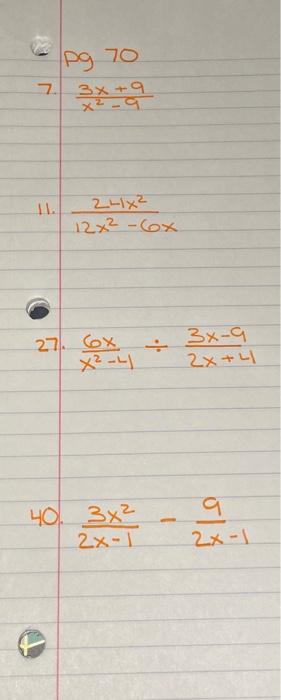 pg 70
7. 3x+9
x²-9
11. 24x²
12x²-6x
27. 6x ÷ 3x-9
x²-4 2x+4
40. 3x² - 9
2x-1 2x-1